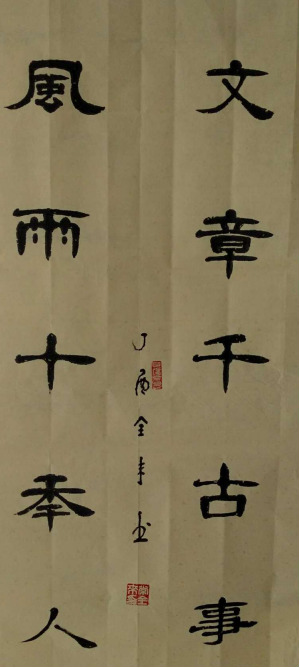 文章千古事
風雨十年人
丁酉全丰书